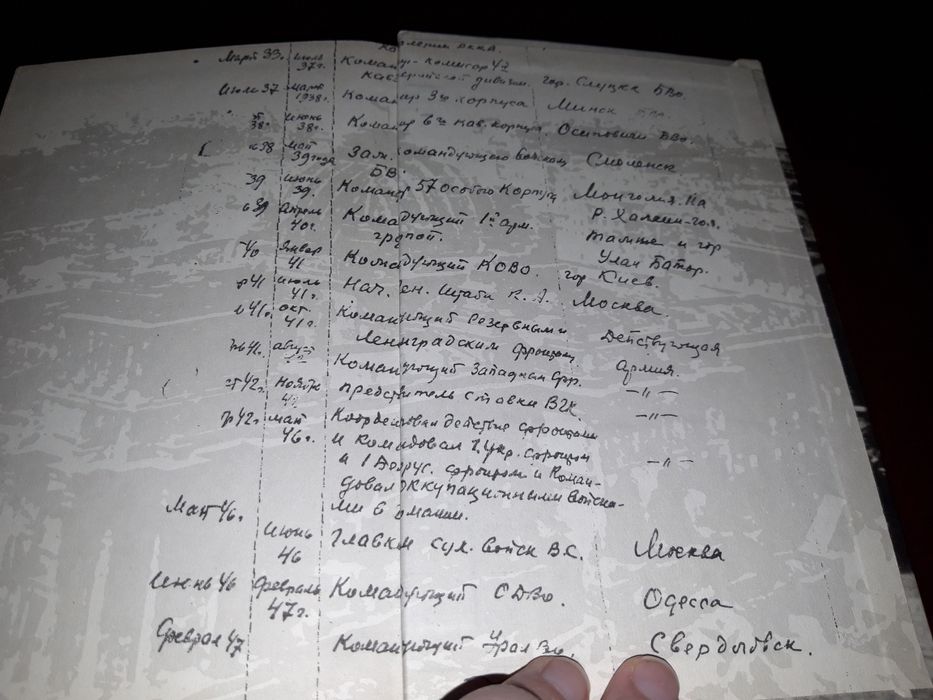 Март 33. Июль 37г. Командир-комисар 4й
кавалерийской дивизии. гор. Слуцк БВо.
Июль 37 март 1938г. Командир 3го корпуса Минск
38г. Июнь 38г. Командир 6го кав. корпуса. Осиповичи БВо.
38 май 39 года Зам. командующего войском Смоленск
БВ.
39 Июнь 39. Командир 57 особого корпуса Монголия. На
39 Апрель 40г. Командующий 1й арм. Р. Халхин-гол.
группой. также и гор
Улан Батор.
40 Январ 41 Командующий КОВо. гор Киев.
41 июль 41г. Нач. Ген. Штаба К.А. Москва.
41г. окт. 41г. Командующий Резервным и Действующая
Ленинградским фронтом. Армия.
41г. август Командующий Западным фр. —〃—
42г. ноябр Представитель ставки ВГК. —〃—
42г. май 46г. Координировал действие фронтами
и командовал 1 Укр. фронтом —〃—
и 1 Белорус. фронтом и Коман-
довал оккупационными войска-
ми в мании.
Май 46.
Июнь 46 Главком сух. войск В.С. Москва
Июнь 46 февраль 47г. Командующий ОдВо. Одесса
Феврал 47 Командующий УралВо. Свердловск.